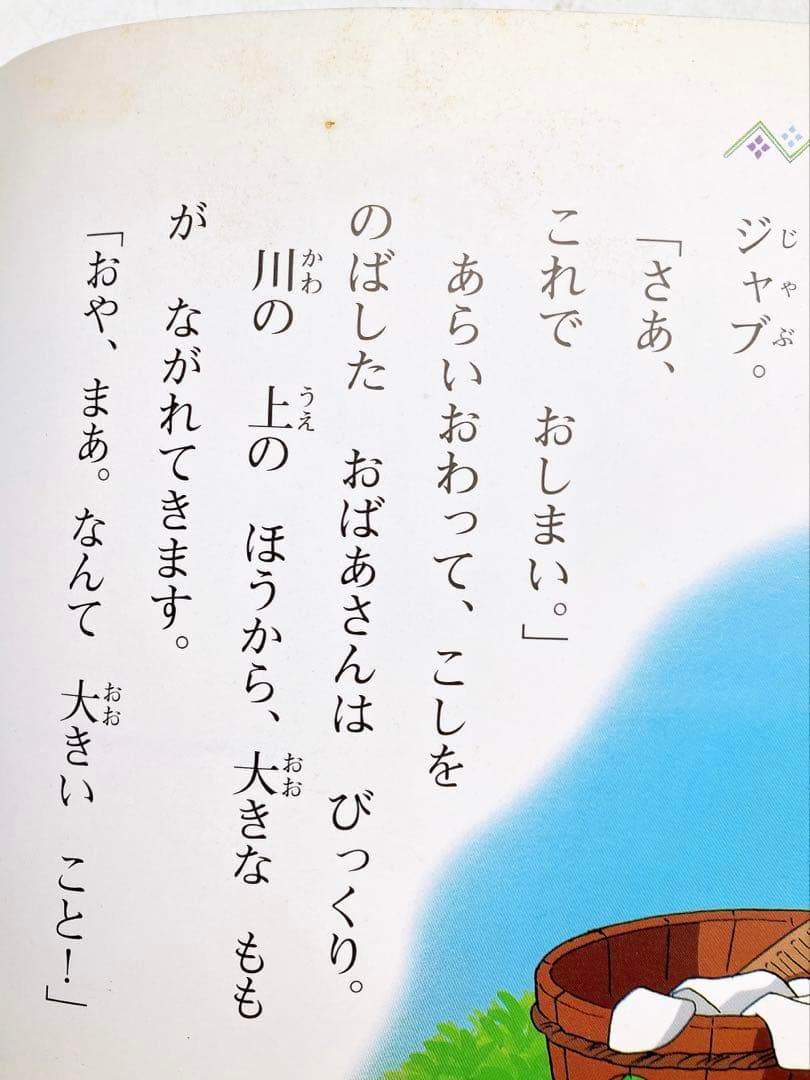 ジャブ。
「さあ、
これで　おしまい。」
　あらいおわって、こしを
のばした　おばあさんは　びっくり。
　川の　上の　ほうから、大きな　もも
が　ながれてきます。
「おや、まあ。なんて　大きい　こと！」